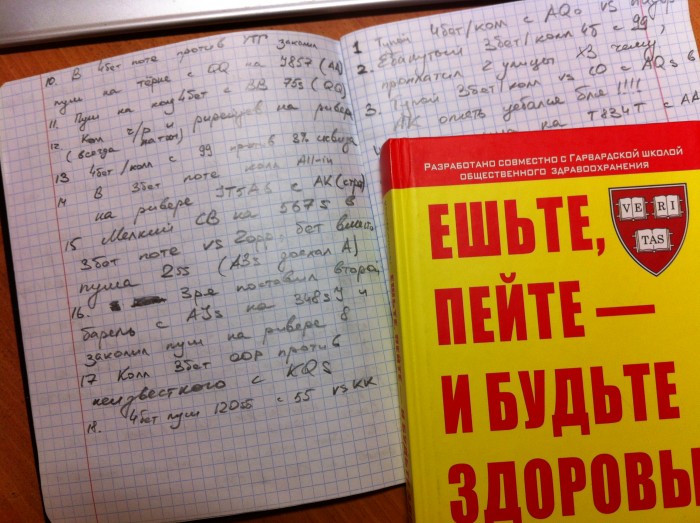 10. В 4бет поте против УТГ заколил
пуш на тёрне с QQ на J857 (AA)
11. Пуш на колд 4бет с ВВ 75э (QQ)
12 Кол ч/р и на ривере
(всегда натсы)
13 4бет/колл с 99 против 8% сквиза
14 В 3бет поте колл All-in
на ривере JT5A6 с AK (стрэ)
15 Мелкий СВ на 567S в
3бет поте vs бет вместо
пуша 2ээ (A3s доехал A)
16. Зря поставил второй
барель с AJs на 348sJ и
заколил пуш на ривере 8
17 Колл 3бет ООР против
неизвестного с KQs
18. 4бет пуш 120бб с 55 vs KK
1 Тупой 4бет/колл с AQo vs
2. 3бет/колл 4б с 99,
проплатил 2 улицы ХЗ чему
3. Тупой 3бет/колл vs CO с AQs в
ЛК опять уебался бля !!!!
на T834T с AA
РАЗРАБОТАНО СОВМЕСТНО С ГАРВАРДСКОЙ ШКОЛОЙ
ОБЩЕСТВЕННОГО ЗДРАВООХРАНЕНИЯ
VE RI
TAS
ЕШЬТЕ,
ПЕЙТЕ —
И БУДЬТЕ
ЗДОРОВЫ